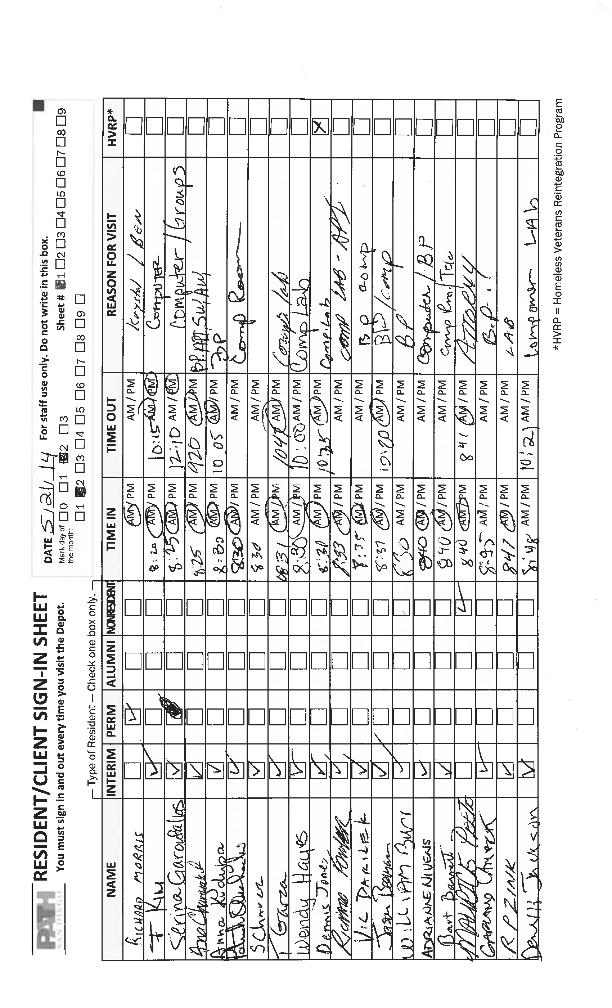 PATH
SAN DIEGO
RESIDENT/CLIENT SIGN-IN SHEET
You must sign in and out every time you visit the Depot.
DATE 5/21/14 For staff use only. Do not write in this box.
Mark day of the month: 0 1 2 3 Sheet # 1 2 3 4 5 6 7 8 9
1 2 3 4 5 6 7 8 9
Type of Resident – Check one box only.
NAME INTERIM PERM ALUMNI NONRESIDENT TIME IN TIME OUT REASON FOR VISIT HVRP*
RICHARD MORRIS AM/PM AM/PM Krystal / Ben
F KIM 8:20 AM/PM 10:15 AM/PM COMPUTER
Serina 8:25 AM/PM 12:10 AM/PM Computer/Groups
Ana 825 AM/PM 920 AM/PM
Anna 8:30 AM/PM 10:05 AM/PM BP
8:30 AM/PM AM/PM Comp Room
S 8:30 AM/PM AM/PM
Garza AM/PM 1042 AM/PM Comp Lab
Wendy Hayes 8:30 AM/PM 10:00 AM/PM Comp Lab
Dennis Jones 8:30 AM/PM 10:25 AM/PM Comp Lab X
Richard AM/PM AM/PM Comp LAB - APT.
Vic DARILEK 8:35 AM/PM AM/PM BP comp
Jason 8:37 AM/PM 10:00 AM/PM BP/comp
WILLIAM 8:30 AM/PM AM/PM BP
ADRIANNE NIVENS 840 AM/PM AM/PM Computer/BP
Bart Barnett 840 AM/PM AM/PM
MAURICE 840 AM/PM 841 AM/PM Attorney
8:45 AM/PM AM/PM B.P.
R P ZINK 847 AM/PM AM/PM LAB
Jackson 8:48 AM/PM 10:21 AM/PM LAb
*HVRP = Homeless Veterans Reintegration Program